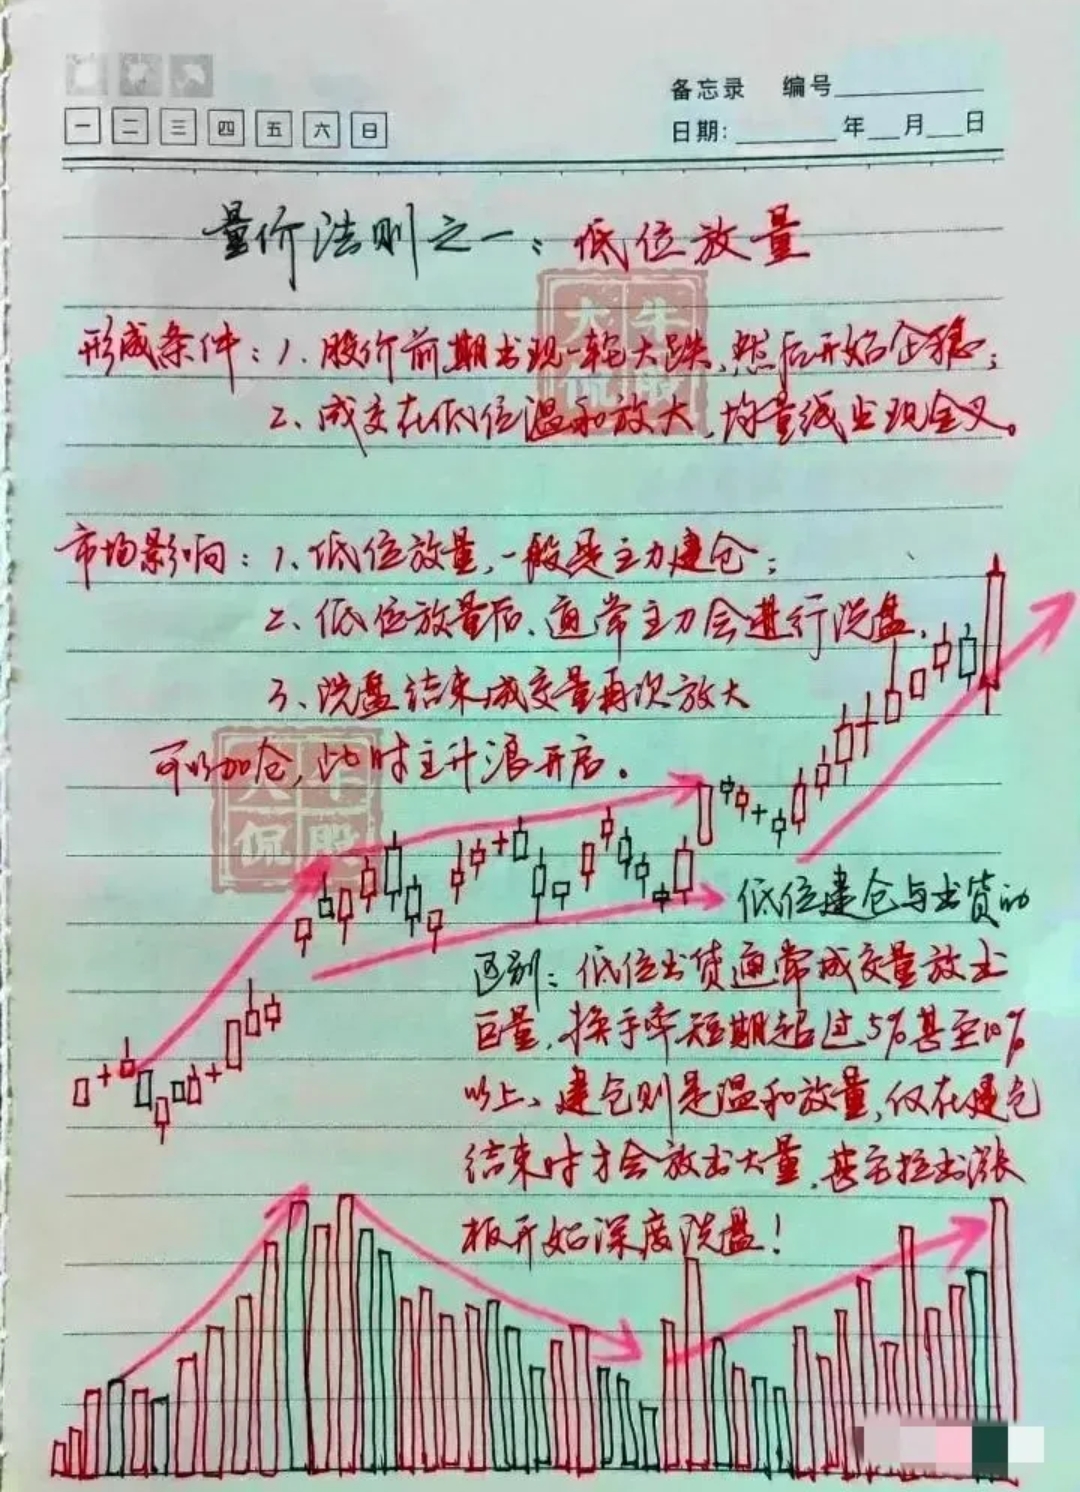 备忘录 编号
一 二 三 四 五 六 日
日期: 年 月 日
量价法则之一：低位放量
大牛
侃股
形成条件：1、股价前期出现一轮大跌，然后开始企稳；
2、成交在低位温和放大，均量线出现金叉。
市场影响：1、低位放量，一般是主力建仓；
2、低位放量后，通常主力会进行洗盘，
3、洗盘结束成交量再次放大
可以加仓，此时主升浪开启。
大牛
侃股
低位建仓与出货的
区别：低位出货通常成交量放出
巨量，换手率短期超过5%甚至10%
以上、建仓则是温和放量，仅在建仓
结束时才会放出大量，甚至拉出涨
板开始深度洗盘！